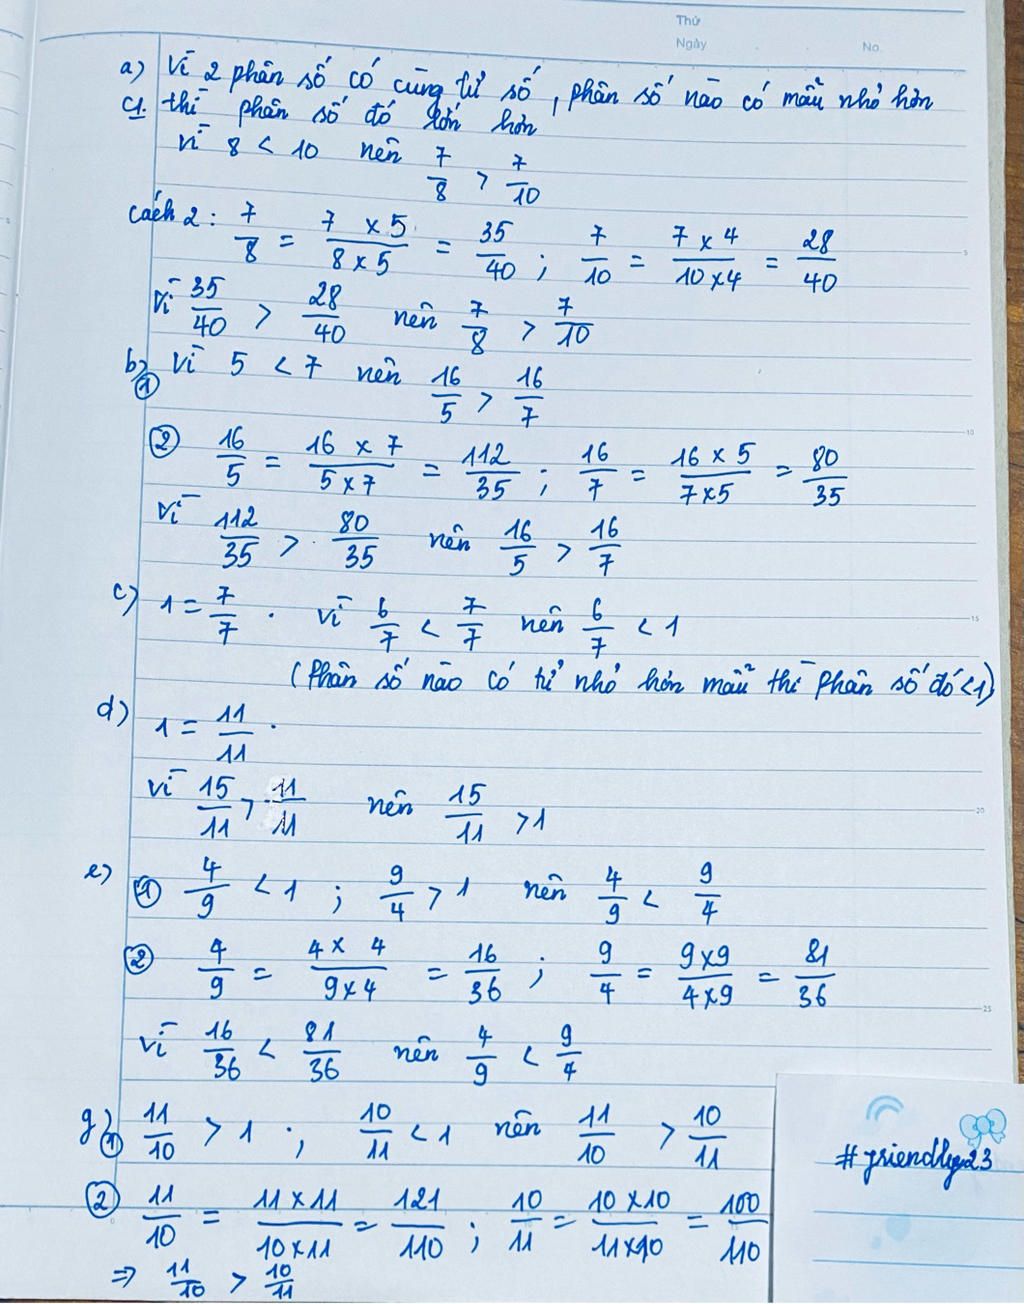 Thứ
Ngày . . No.
a) Vì 2 phân số có cùng tử số, phân số nào có mẫu nhỏ hơn
C1. thì phân số đó lớn hơn
Vì 8 < 10 nên 7/8 > 7/10
Cách 2: 7/8 = 7 x 5/8 x 5 = 35/40 ; 7/10 = 7 x 4/10 x 4 = 28/40
Vì 35/40 > 28/40 nên 7/8 > 7/10
b) Vì 5 < 7 nên 16/5 > 16/7
①
② 16/5 = 16 x 7/5 x 7 = 112/35 ; 16/7 = 16 x 5/7 x 5 = 80/35
Vì 112/35 > 80/35 nên 16/5 > 16/7
c) 1 = 7/7 . Vì 6/7 < 7/7 nên 6/7 < 1
(Phân số nào có tử nhỏ hơn mẫu thì phân số đó < 1)
d) 1 = 11/11 .
Vì 15/11 > 11/11 nên 15/11 > 1
e) ① 4/9 < 1 ; 9/4 > 1 nên 4/9 < 9/4
② 4/9 = 4 x 4/9 x 4 = 16/36 ; 9/4 = 9 x 9/4 x 9 = 81/36
Vì 16/36 < 81/36 nên 4/9 < 9/4
g) ① 11/10 > 1 ; 10/11 < 1 nên 11/10 > 10/11
② 11/10 = 11 x 11/10 x 11 = 121/110 ; 10/11 = 10 x 10/11 x 10 = 100/110
⇒ 11/10 > 10/11
#friendly23
5
10
15
20
25